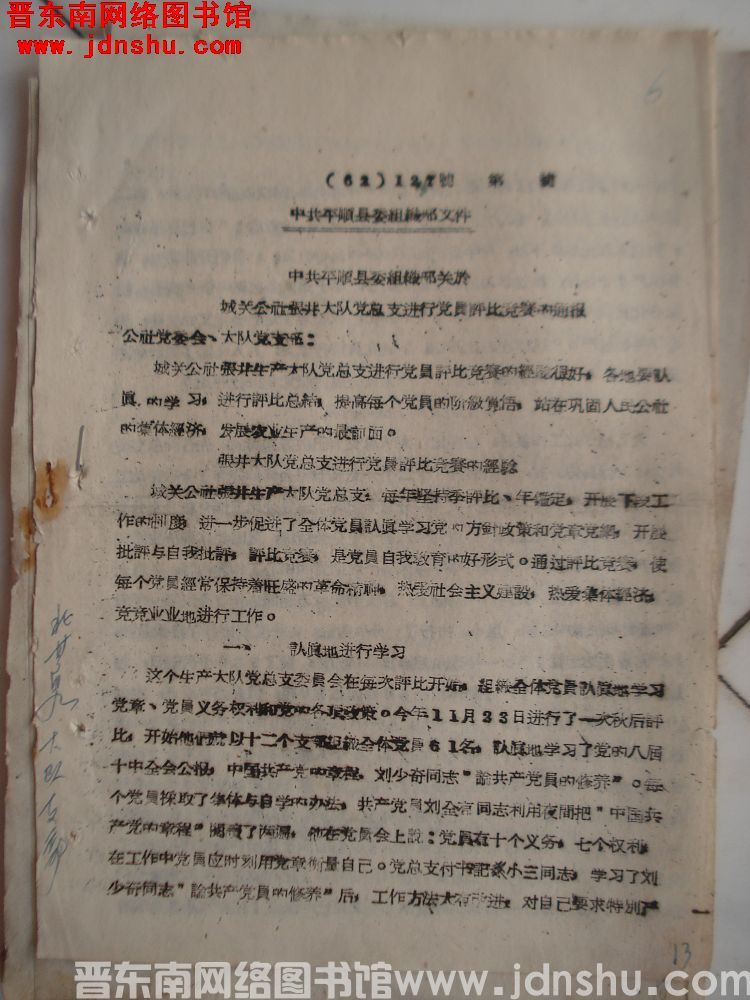 晋东南网络图书馆
www.jdnshu.com
6
(62)127號 第 號
中共平順县委組織部文件
中共平順县委組織部关於
城关公社張井大队党总支进行党員評比竞賽的通报
公社党委会、大队党支部:
城关公社張井生产大队党总支进行党員評比竞賽的經驗很好,各地要認
眞 的学习,进行評比总結,提高每个党員的阶級覚悟,站在巩固人民公社
的集体經济,发展农业生产的最前面。
張井大队党总支进行党員評比竞賽的經驗
城关公社張井生产大队党总支,每年坚持季評比、年鑑定,开展 工
作的制度,进一步促进了全体党員認眞学习党的方針政策和党章党綱,开展
批評与自我批評,評比竞賽,是党員自我教育的好形式。通过評比竞賽,使
每个党員經常保持着旺盛的革命精神,热爱社会主义建設,热爱集体經济,
兢兢业业地进行工作。
一、 認眞地进行学习
这个生产大队党总支委員会在每次評比开始,組織全体党員認眞地学习
党章、党員义务权利和党的各项政策。今年11月23日进行了一次秋后評
比,开始他們就以十二个支部組織全体党員61名,認眞地学习了党的八届
十中全会公报,中国共产党的章程,刘少奇同志"論共产党員的修养"。每
个党員採取了集体与自学的办法,共产党員刘金富同志利用夜間把"中国共
产党的章程"閱讀了两遍,他在党員会上說:党員有十个义务,七个权利,
在工作中党員应时刻用党章衡量自己。党总支付书記 小三同志,学习了刘
少奇同志"論共产党員的修养"后,工作方法大有改进,对自己要求特別严
13
晋东南网络图书馆www.jdnshu.com